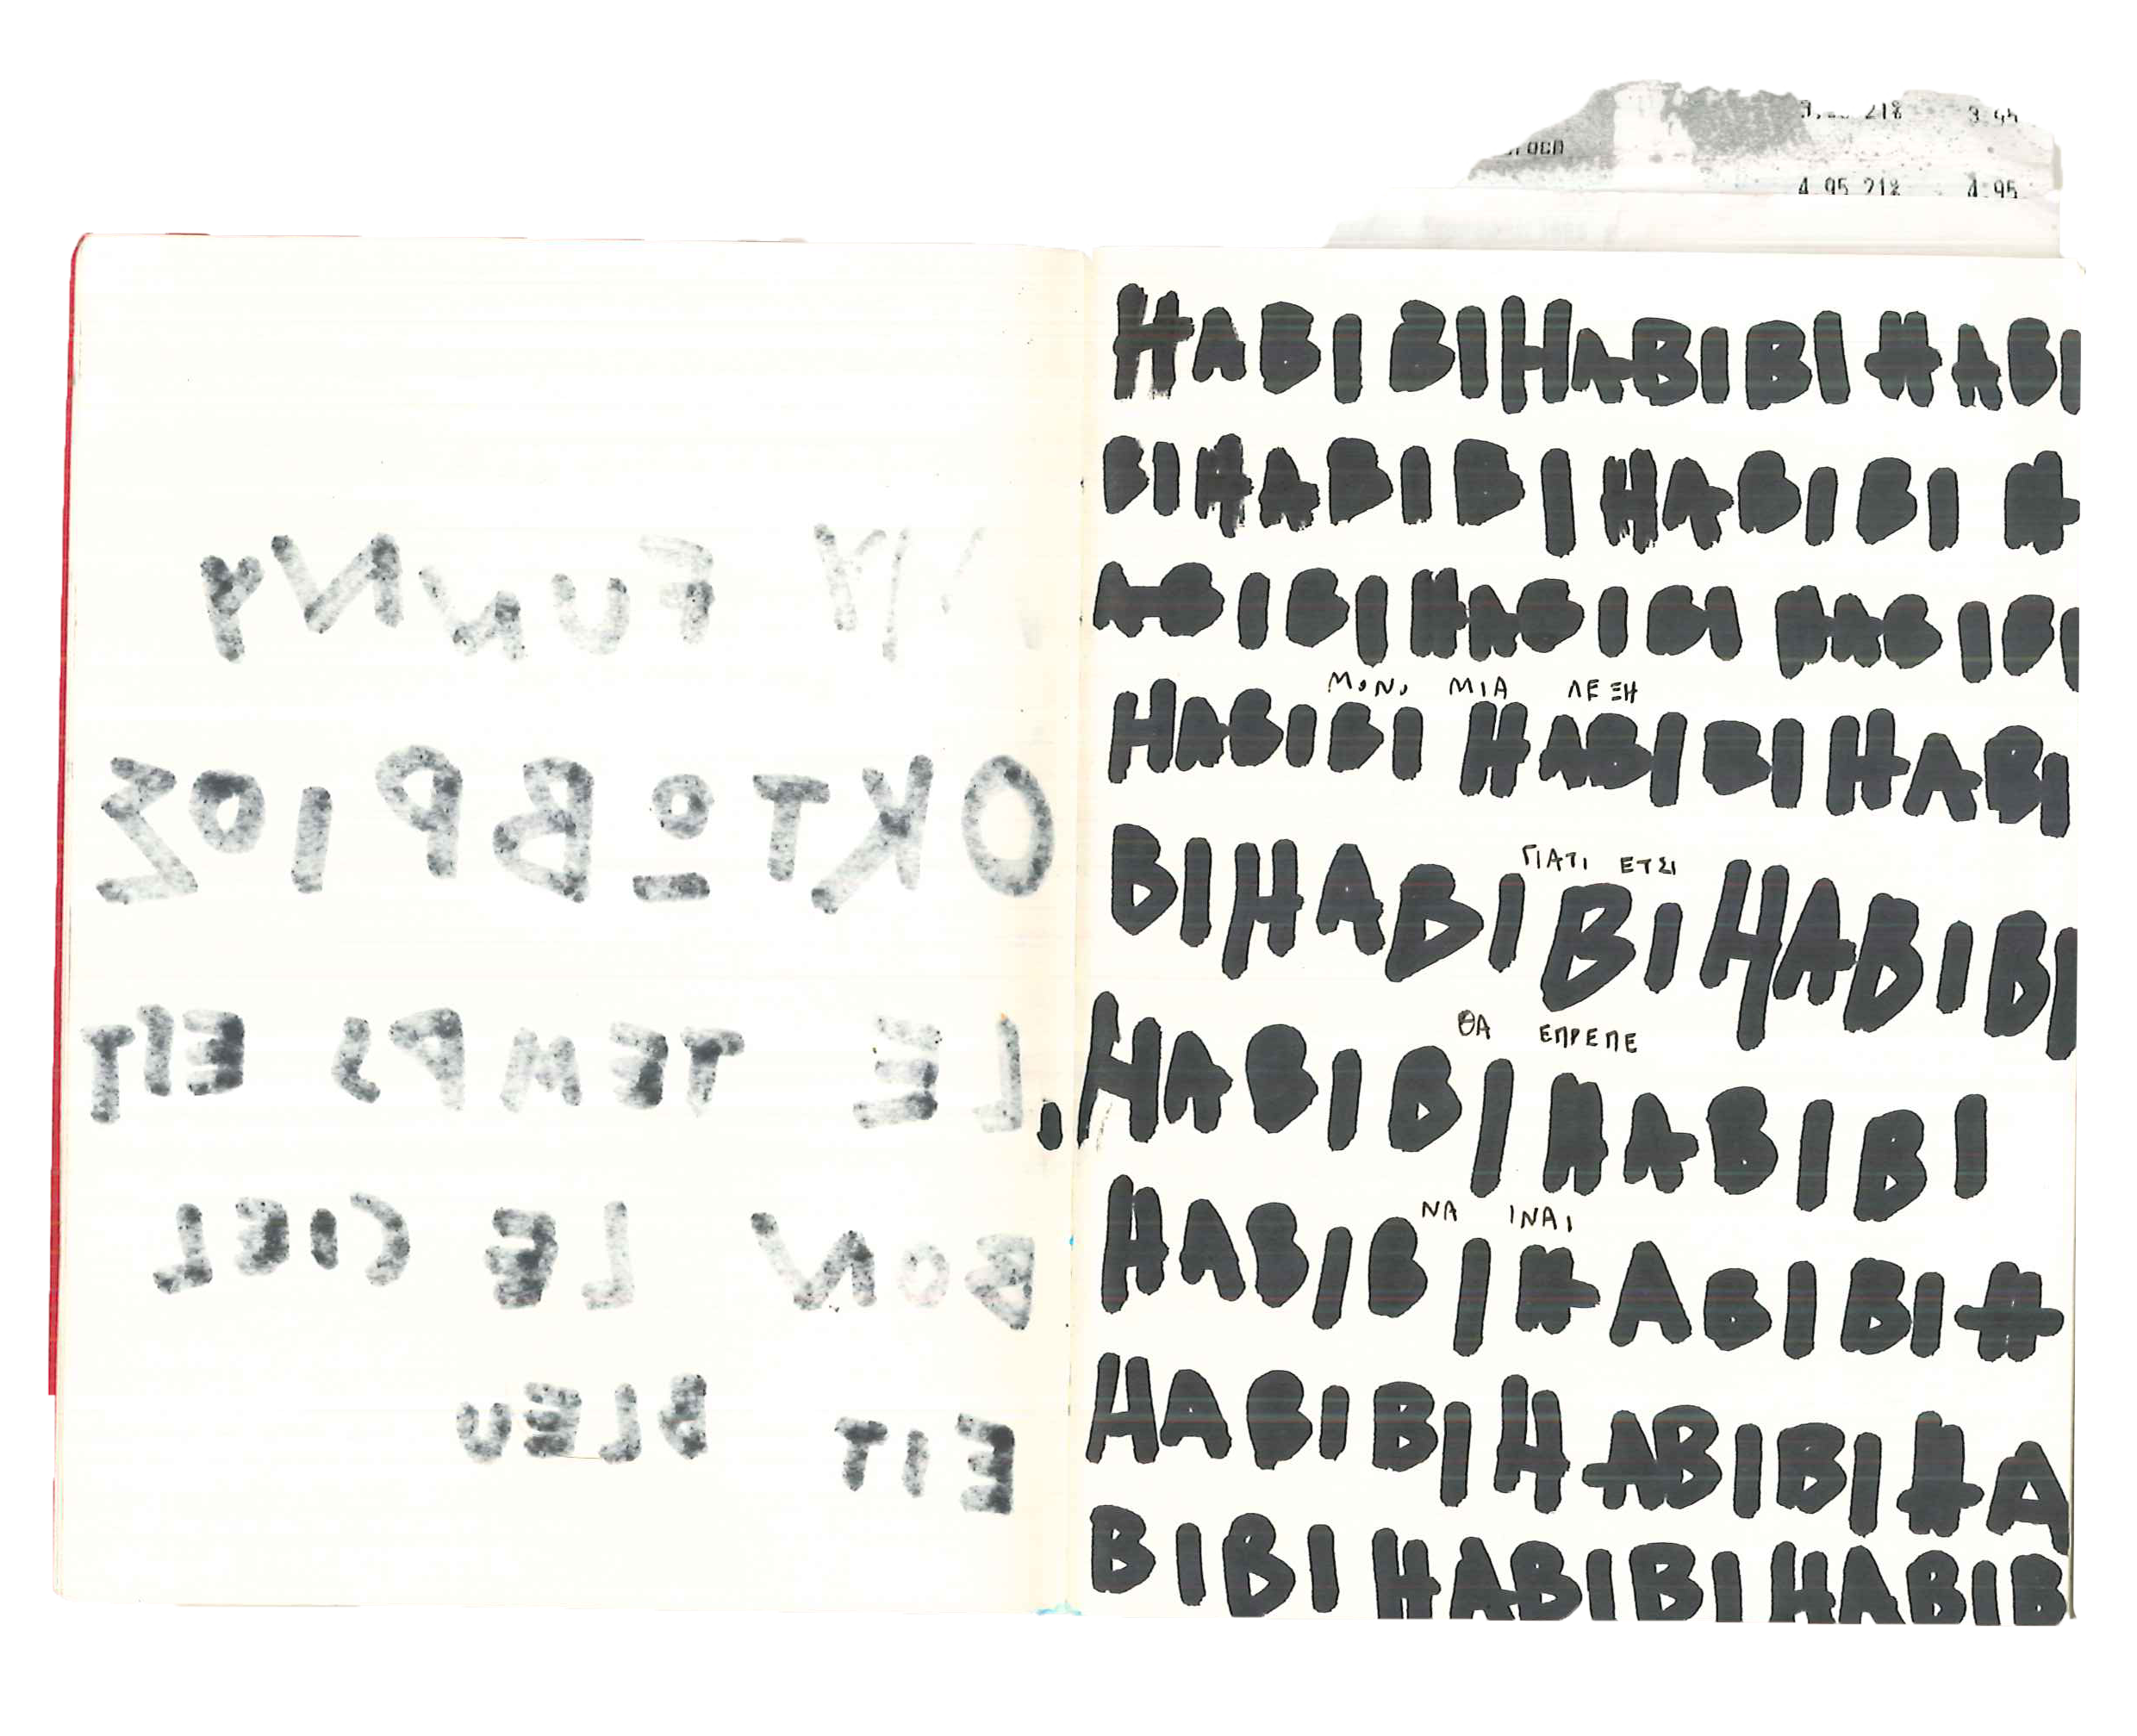 9. 21% 3.95
4.95 21% 4.95
MY FUNNY
ΟΚΤΟΒΡΙΟΣ
LE TEMPS EIT
BON LE CIEL
EIT BLEU
HABIBIHABIBI HABI
BIHABIBI HABIBI H
ABIBIHABIBI HABIBI
ΜΟΝΟ ΜΙΑ ΛΕΞΗ
HABIBI HABIBI HABI
ΓΙΑΤΙ ΕΤΣΙ
BIHABIBI HABIBI
ΘΑ ΕΠΡΕΠΕ
HABIBI HABIBI
ΝΑ ΙΝΑΙ
HABIBI HABIBI H
HABIBI HABIBI HA
BIBI HABIBI HABIB